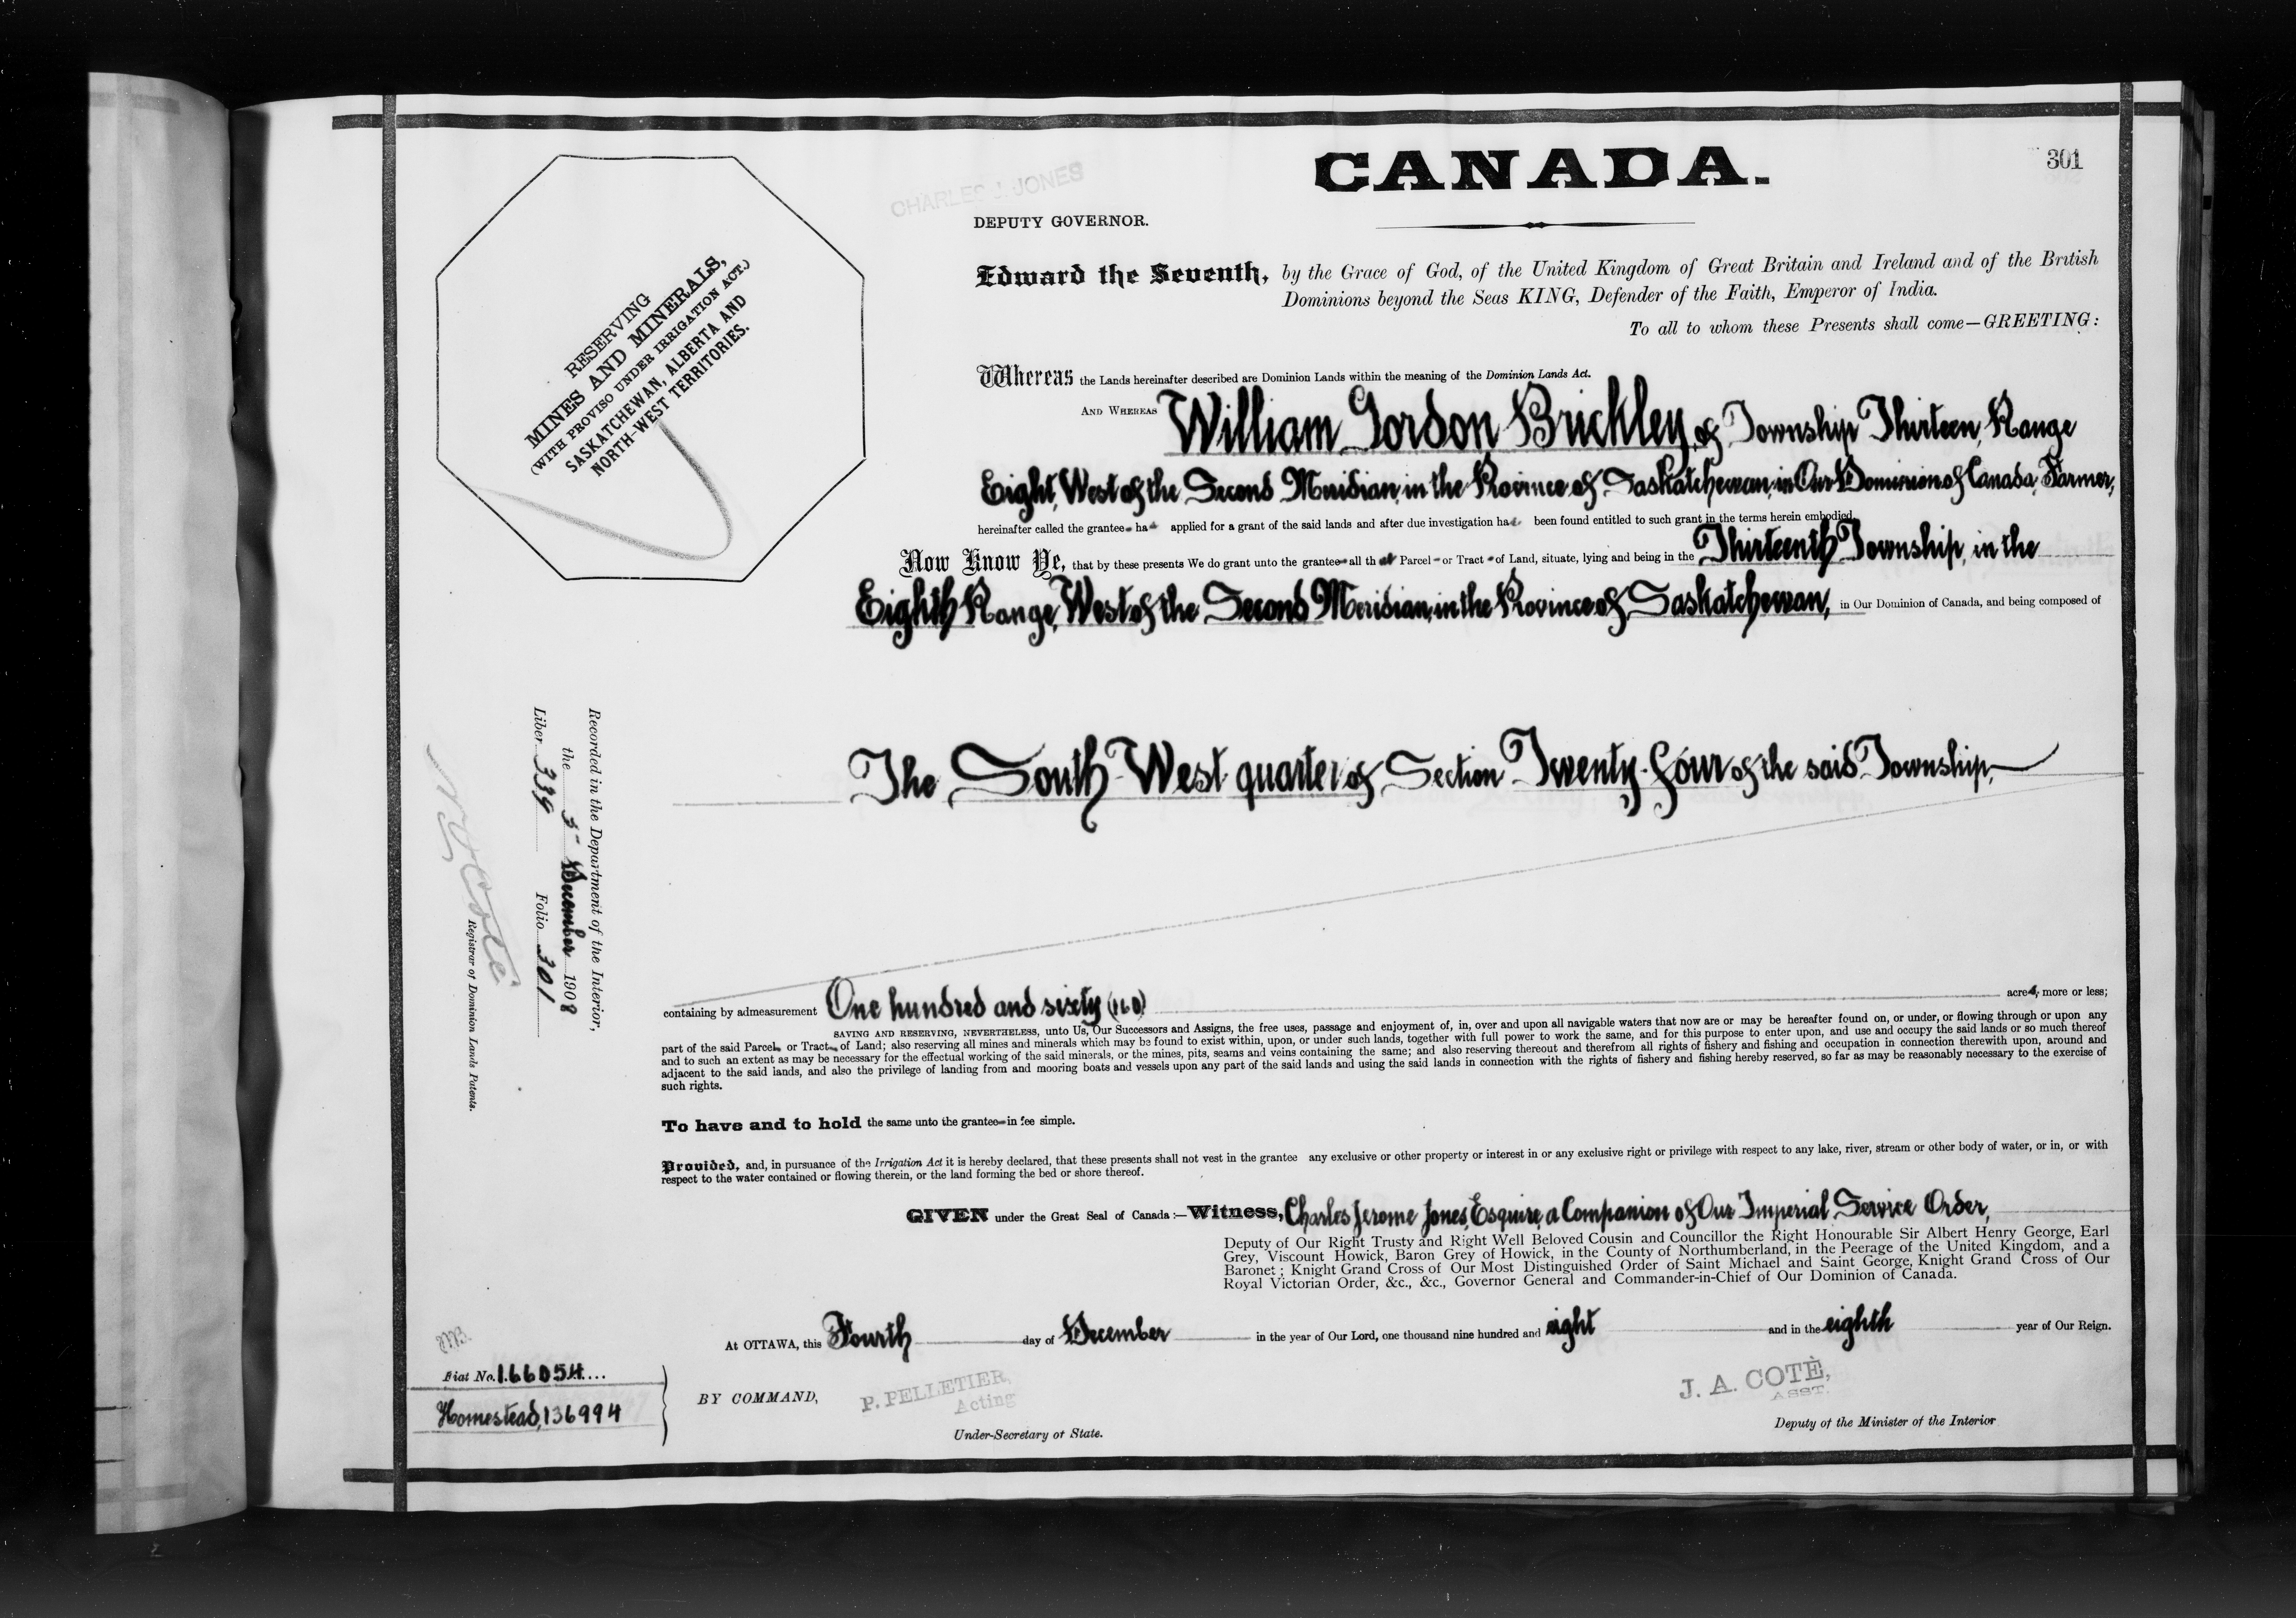 301
CANADA.
CHARLES J. JONES
DEPUTY GOVERNOR.
RESERVING
MINES AND MINERALS,
(WITH PROVISO UNDER IRRIGATION ACT.)
SASKATCHEWAN, ALBERTA AND
NORTH-WEST TERRITORIES.
Edward the Seventh, by the Grace of God, of the United Kingdom of Great Britain and Ireland and of the British
Dominions beyond the Seas KING, Defender of the Faith, Emperor of India.
To all to whom these Presents shall come—GREETING:
Whereas the Lands hereinafter described are Dominion Lands within the meaning of the Dominion Lands Act.
AND WHEREAS William Gordon Brickley of Township Thirteen, Range
Eight, West of the Second Meridian, in the Province of Saskatchewan, in Our Dominion of Canada, Farmer,
hereinafter called the grantee ha applied for a grant of the said lands and after due investigation ha been found entitled to such grant in the terms herein embodied.
Now Know Ye, that by these presents We do grant unto the grantee all that Parcel or Tract of Land, situate, lying and being in the Thirteenth Township, in the
Eighth Range, West of the Second Meridian, in the Province of Saskatchewan, in Our Dominion of Canada, and being composed of
The South West quarter of Section Twenty-four of the said Township,
containing by admeasurement One hundred and sixty (160) acres, more or less;
SAVING AND RESERVING, NEVERTHELESS, unto Us, Our Successors and Assigns, the free uses, passage and enjoyment of, in, over and upon all navigable waters that now are or may be hereafter found on, or under, or flowing through or upon any
part of the said Parcel or Tract of Land; also reserving all mines and minerals which may be found to exist within, upon, or under such lands, together with full power to work the same, and for this purpose to enter upon, and use and occupy the said lands or so much thereof
and to such an extent as may be necessary for the effectual working of the said minerals, or the mines, pits, seams and veins containing the same; and also reserving thereout and therefrom all rights of fishery and fishing and occupation in connection therewith upon, around and
adjacent to the said lands, and also the privilege of landing from and mooring boats and vessels upon any part of the said lands and using the said lands in connection with the rights of fishery and fishing hereby reserved, so far as may be reasonably necessary to the exercise of
such rights.
To have and to hold the same unto the grantee in fee simple.
Provided, and, in pursuance of the Irrigation Act it is hereby declared, that these presents shall not vest in the grantee any exclusive or other property or interest in or any exclusive right or privilege with respect to any lake, river, stream or other body of water, or in, or with
respect to the water contained or flowing therein, or the land forming the bed or shore thereof.
GIVEN under the Great Seal of Canada:—Witness, Charles Jerome Jones, Esquire, a Companion of Our Imperial Service Order,
Deputy of Our Right Trusty and Right Well Beloved Cousin and Councillor the Right Honourable Sir Albert Henry George, Earl
Grey, Viscount Howick, Baron Grey of Howick, in the County of Northumberland, in the Peerage of the United Kingdom, and a
Baronet; Knight Grand Cross of Our Most Distinguished Order of Saint Michael and Saint George, Knight Grand Cross of Our
Royal Victorian Order, &c., &c., Governor General and Commander-in-Chief of Our Dominion of Canada.
At OTTAWA, this Fourth day of December in the year of Our Lord, one thousand nine hundred and eight and in the eighth year of Our Reign.
BY COMMAND,
P. PELLETIER,
Acting
Under-Secretary of State.
J. A. COTÈ,
ASST.
Deputy of the Minister of the Interior
Recorded in the Department of the Interior,
the 5 December 1908
Liber 339 Folio 301
Registrar of Dominion Lands Patents.
Fiat No. 166054
Homestead, 136994